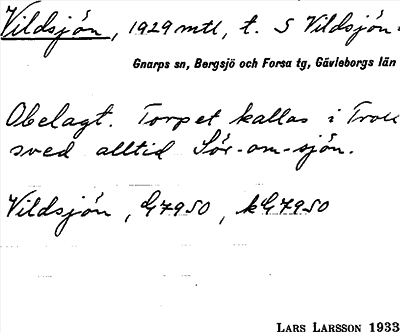 Vildsjön, 1929 mtl, t. S Vildsjön.
Gnarps sn, Bergsjö och Forsa tg, Gävleborgs län
Obelagt. Torpet kallas i Troll
sved alltid Sör-om-sjön.
Vildsjön, G7950, kG7950
LARS LARSSON 1933